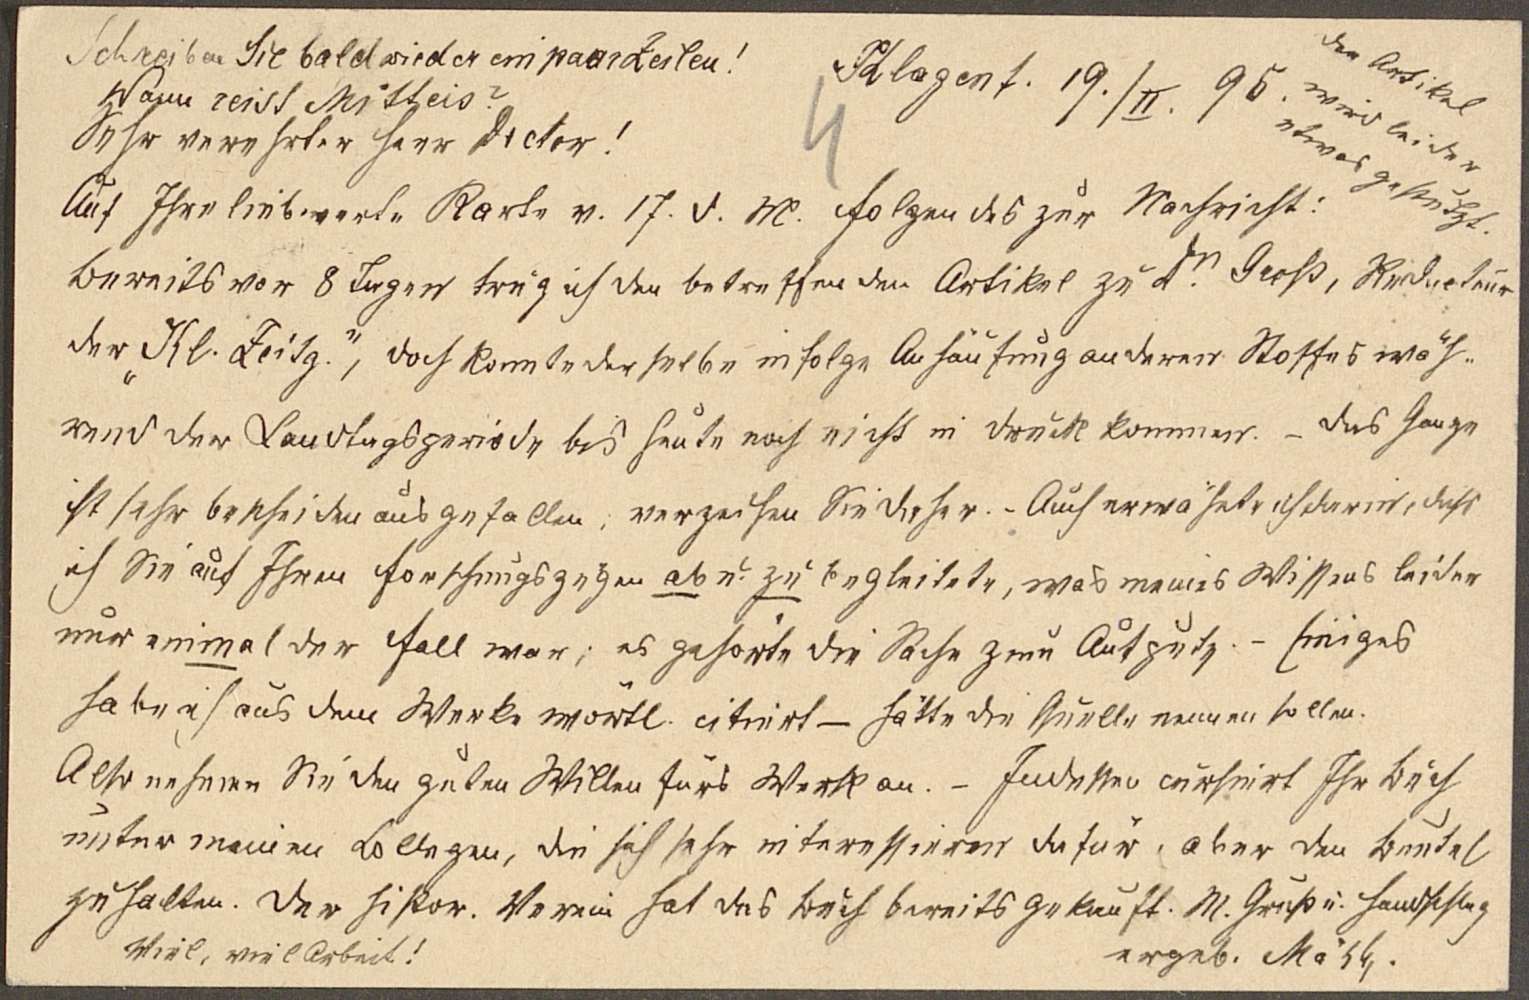 Schreiben Sie bald wieder ein paar Zeilen!
Wann reist Mitteis?
Klagenf. 19./II. 95.
der Artikel
wird leider
etwas gestutzt.
4
Sehr verehrter Herr Doctor!
Auf Ihre liebwerte Karte v. 17. d. M. folgendes zur Nachricht:
Bereits vor 8 Tagen trug ich den betreffenden Artikel zu Dr. Groß, Redacteur
der „Kl. Zeitg.", doch konnte derselbe infolge Anhäufung anderen Stoffes wäh-
rend der Landtagsperiode bis heute noch nicht in Druck kommen. – Das Ganze
ist sehr bescheiden ausgefallen; verzeihen Sie daher. – Auch erwähnte ich darin, dass
ich Sie auf Ihren Forschungszügen ab u. zu begleitete, was meines Wissens leider
nur einmal der Fall war; es gehörte die Sache zum Aufputz. – Einiges
habe ich aus dem Werke wörtl. citiert – hätte die Quelle nennen sollen.
Also nehmen Sie den guten Willen fürs Werk an. – Indessen cursiert Ihr Buch
unter meinen Collegen, die sich sehr interessieren dafür, aber den Beutel
zuhalten. Der histor. Verein hat das Buch bereits gekauft. M. Gruß u. Handschlag
Viel, viel Arbeit!
ergeb.